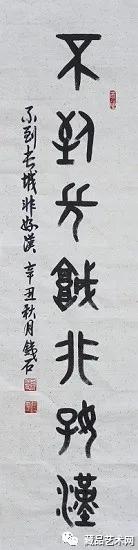 不到长城非好汉
不到长城非好漢 辛丑秋月 铁石
藏品艺术网